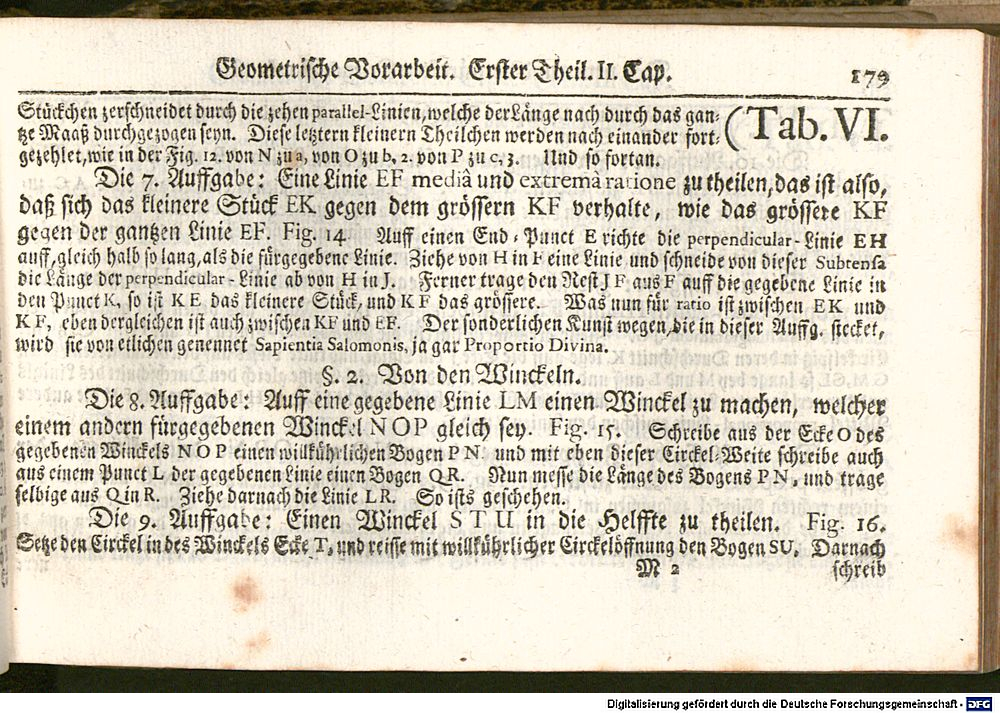 Geometrische Vorarbeit. Erster Theil. II. Cap. 179
Stückchen zerschneidet durch die zehen parallel-Linien, welche der Länge nach durch das gan-
tze Maaß durchgezogen seyn. Diese letztern kleinern Theilchen werden nach einander fort-
gezehlet, wie in der Fig. 12. von N zu a, von O zu b, 2. von P zu c, 3. Und so fortan.
(Tab. VI.
Die 7. Auffgabe: Eine Linie EF mediâ und extremâ ratione zu theilen, das ist also,
daß sich das kleinere Stück EK gegen dem grössern KF verhalte, wie das grössere KF
gegen der gantzen Linie EF. Fig. 14 Auff einen End-Punct E richte die perpendicular-Linie EH
auff, gleich halb so lang, als die fürgegebene Linie. Ziehe von H in F eine Linie und schneide von dieser Subtensa
die Länge der perpendicular-Linie ab von H in J. Ferner trage den Rest J F aus F auff die gegebene Linie in
den Punct K, so ist K E das kleinere Stück, und K F das grössere. Was nun für ratio ist zwischen EK und
KF, eben dergleichen ist auch zwischen KF und EF. Der sonderlichen Kunst wegen, die in dieser Auffg. stecket,
wird sie von etlichen genennet Sapientia Salomonis, ja gar Proportio Divina.
§. 2. Von den Winckeln.
Die 8. Auffgabe: Auff eine gegebene Linie LM einen Winckel zu machen, welcher
einem andern fürgegebenen Winckel NOP gleich sey. Fig. 15. Schreibe aus der Ecke O des
gegebenen Winckels NOP einen willkührlichen Bogen PN. und mit eben dieser Circkel-Weite schreibe auch
aus einem Punct L der gegebenen Linie einen Bogen QR. Nun messe die Länge des Bogens PN, und trage
selbige aus Q in R. Ziehe darnach die Linie LR. So ists geschehen.
Die 9. Auffgabe: Einen Winckel STU in die Helffte zu theilen. Fig. 16.
Setze den Circkel in des Winckels Ecke T, und reisse mit willkührlicher Circkelöffnung den Bogen SU. Darnach
M 2 schreib
Digitalisierung gefördert durch die Deutsche Forschungsgemeinschaft - DFG